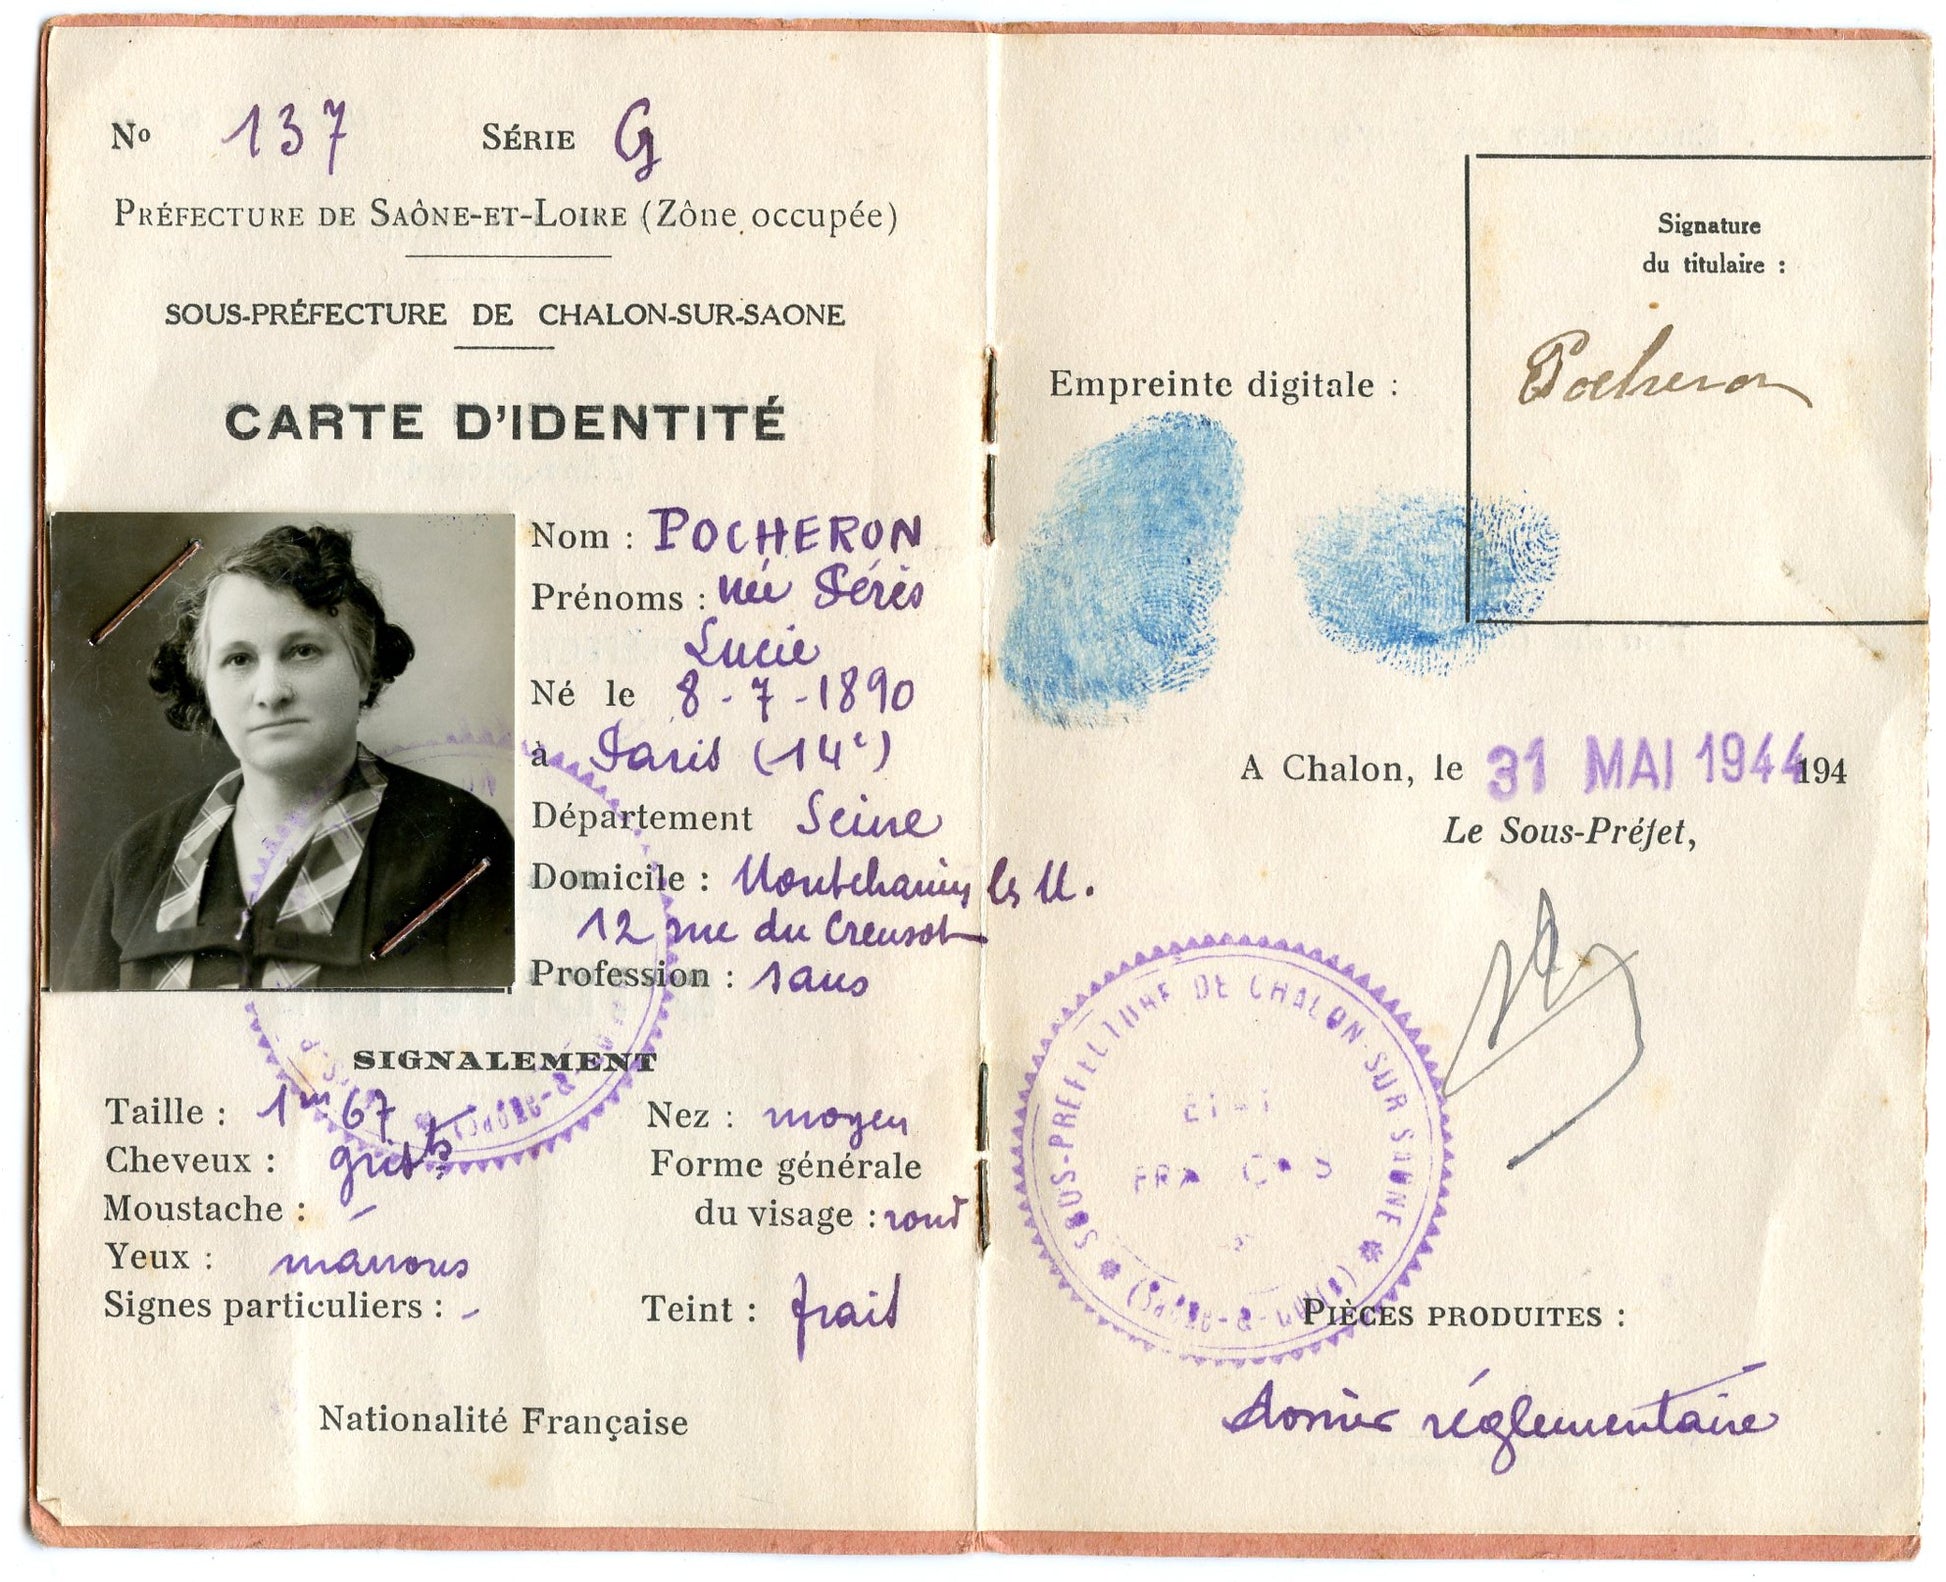 No 137 SÉRIE G
PRÉFECTURE DE SAÔNE-ET-LOIRE (Zône occupée)
SOUS-PRÉFECTURE DE CHALON-SUR-SAONE
CARTE D'IDENTITÉ
Nom : POCHERON
Prénoms : née Péris
Lucie
Né le 8-7-1890
à Paris (14e)
Département Seine
Domicile : Montchanin les M.
12 rue du Creusot
Profession : sans
SIGNALEMENT
Taille : 1m67
Cheveux :
Moustache : -
Yeux : marrons
Signes particuliers : -
Nez : moyen
Forme générale
du visage : rond
Teint : frais
Nationalité Française
Signature
du titulaire :
Pocheron
Empreinte digitale :
A Chalon, le 31 MAI 1944 194
Le Sous-Préfet,
SOUS-PRÉFECTURE DE CHALON-SUR SAONE
PIÈCES PRODUITES :
dossier réglementaire